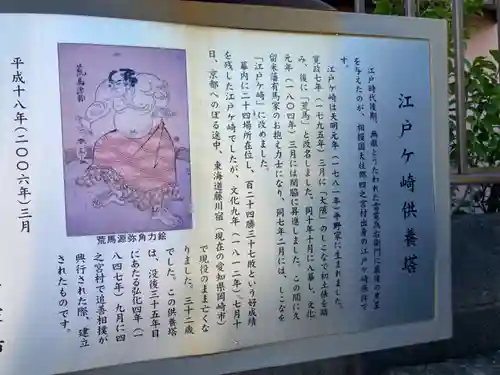 江戸ケ崎供養塔
江戸時代後期、無敵とうたわれた雷電為右衛門に最後の黒星
を与えたのが、相模国大住郡四之宮村出身の江戸ケ崎源弥で
す。
江戸ケ崎は天明元年（一七八一年）平野家に生まれました。
寛政七年（一七九五年）三月に「大隅」のしこなで初土俵を踏
み、後に「荒馬」と改名しました。同十年十月に入幕し、文化
元年（一八〇四年）三月には関脇に昇進しました。この間に久
留米藩有馬家のお抱え力士になり、同七年二月には、しこなを
「江戸ケ崎」に改めました。
幕内に二十四場所在位し、百二十四勝三十七敗という好成績
を残した江戸ケ崎でしたが、文化九年（一八一二年）七月十
日、京都へのぼる途中、東海道藤川宿（現在の愛知県岡崎市）
で現役のまま亡くな
りました。三十二歳
でした。この供養塔
は、没後三十五年目
にあたる弘化四年（一
八四七年）九月に四
之宮村で追善相撲が
興行された際、建立
されたものです。
荒馬源弥
荒馬源弥角力絵
平成十八年（二〇〇六年）三月